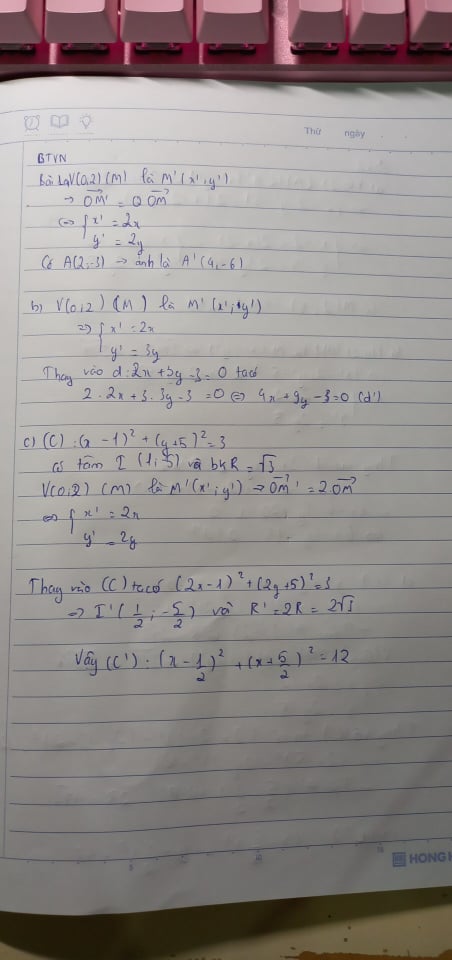 Thứ ngày
BTVN
Bài 1a) V(0,2) (M) là M'(x';y')
→ OM' = 2 OM
⇔ { x' = 2x
y' = 2y
Có A(2;-3) → ảnh là A'(4,-6)
b) V(0,2) (M) là M'(x';y')
⇒ { x' = 2x
y' = 3y
Thay vào d: 2x+3y-3=0 ta có
2.2x+3.3y-3 =0 ⇔ 4x+9y-3=0 (d')
c) (C) : (x-1)² + (y+5)² = 3
có tâm I (1;5) và bk R = √3
V(0;2) (M) là M'(x';y') → OM' = 2.OM
⇔ { x' = 2x
y' = 2y
Thay vào (C) ta có (2x-1)² + (2y+5)² = 3
⇒ I' (1/2 ; -5/2) và R' = 2R = 2√3
Vậy (C') : (x - 1/2)² + (x + 5/2)² = 12
5 10 15
HONG H